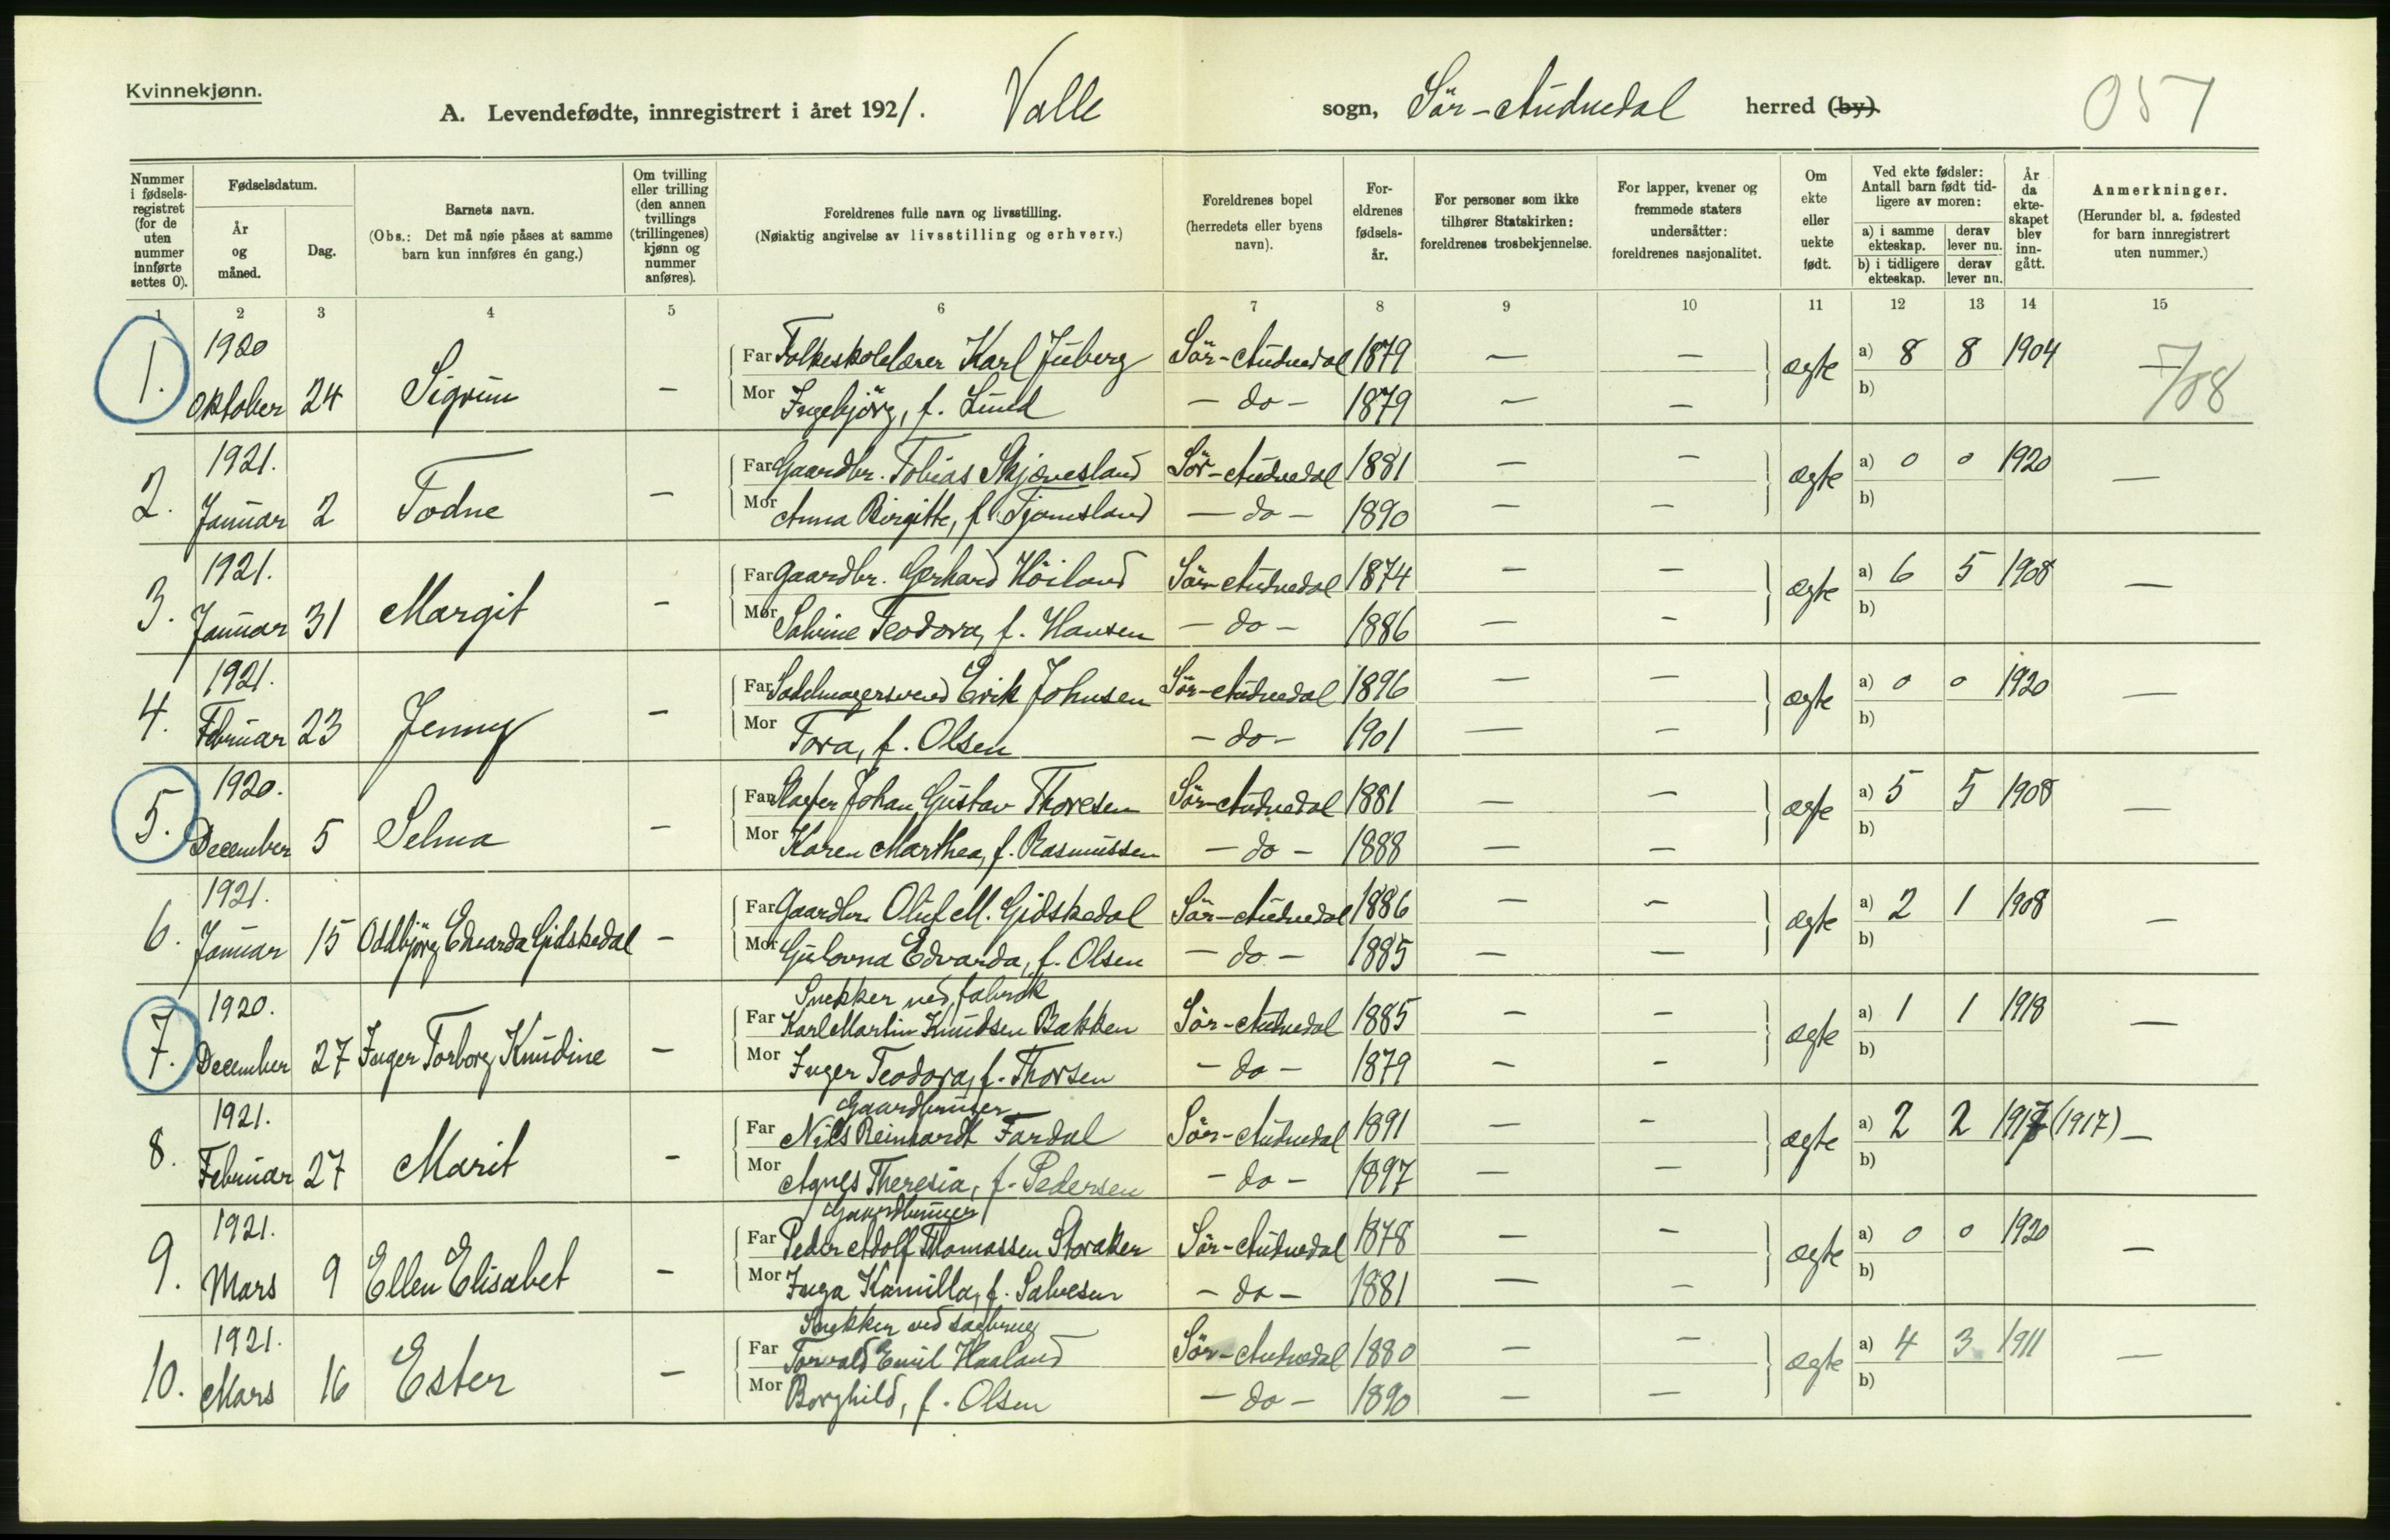 Kvinnekjønn.
A. Levendefødte, innregistrert i året 1921. Valle sogn, Sör-Audnedal herred (by). 057
Nummer i fødselsregistret (for de uten nummer innførte settes 0).
Fødselsdatum.
År og måned.
Dag.
Barnets navn.
(Obs.: Det må nøie påses at samme barn kun innføres én gang.)
Om tvilling eller trilling (den annen tvillings (trillingenes) kjønn og nummer anføres).
Foreldrenes fulle navn og livsstilling.
(Nøiaktig angivelse av livsstilling og erhverv.)
Foreldrenes bopel (herredets eller byens navn).
Foreldrenes fødselsår.
For personer som ikke tilhører Statskirken: foreldrenes trosbekjennelse.
For lapper, kvener og fremmede staters undersåtter: foreldrenes nasjonalitet.
Om ekte eller uekte født.
Ved ekte fødsler: Antall barn født tidligere av moren:
a) i samme ekteskap. derav lever nu.
b) i tidligere ekteskap. derav lever nu.
År da ekteskapet blev inngått.
Anmerkninger.
(Herunder bl. a. fødested for barn innregistrert uten nummer.)
1 2 3 4 5 6 7 8 9 10 11 12 13 14 15
1. 1920 Oktober 24 Sigrun - Far Folkeskolelærer Karl Juberg Sör-Audnedal 1879 - - ægte a) 8 8 1904 - 7/08
Mor Ingebjörg, f. Lund - do - 1879 - - b)
2. 1921. Januar 2 Todne - Far Gaardbr. Tobias Skjævesland Sör-Audnedal 1881 - - ægte a) 0 0 1920 -
Mor Anna Birgitte, f. Tjomsland - do - 1890 - - b)
3. 1921. Januar 31 Margit - Far Gaardbr. Gerhard Höiland Sör-Audnedal 1874 - - ægte a) 6 5 1908 -
Mor Sabine Teodora, f. Hansen - do - 1886 - - b)
4. 1921. Februar 23 Jenny - Far Sadelmagersvend Erik Johnsen Sör-Audnedal 1896 - - ægte a) 0 0 1920 -
Mor Tora, f. Olsen - do - 1901 - - b)
5. 1920. December 5 Selma - Far Johan Gustav Thoresen Sör-Audnedal 1881 - - ægte a) 5 5 1908 -
Mor Karen Marthea, f. Rasmussen - do - 1888 - - b)
6. 1921. Januar 15 Oddbjörg Edvarda Gidskedal - Far Gaardbr. Oluf M. Gidskedal Sör-Audnedal 1886 - - ægte a) 2 1 1908 -
Mor Gulovna Edvarda, f. Olsen - do - 1885 - - b)
7. 1920. December 27 Inger Torborg Knudine - Snekker ved fabrik
Far Karl Martin Knudsen Bakken Sör-Audnedal 1885 - - ægte a) 1 1 1918 -
Mor Inger Teodora, f. Thorsen - do - 1879 - - b)
8. 1921. Februar 27 Marit - Gaardbruker
Far Nils Reinhardt Fardal Sör-Audnedal 1891 - - ægte a) 2 2 1917 (1917) -
Mor Agnes Theresia, f. Pedersen - do - 1897 - - b)
9. 1921. Mars 9 Ellen Elisabet - Gaardbruker
Far Peder Adolf Thomassen Storaker Sör-Audnedal 1878 - - ægte a) 0 0 1920 -
Mor Inga Kamilla, f. Salvesen - do - 1881 - - b)
10. 1921. Mars 16 Ester - Snekker ved sagbrug
Far Torvald Emil Haaland Sör-Audnedal 1880 - - ægte a) 4 3 1911 -
Mor Borghild, f. Olsen - do - 1890 - - b)